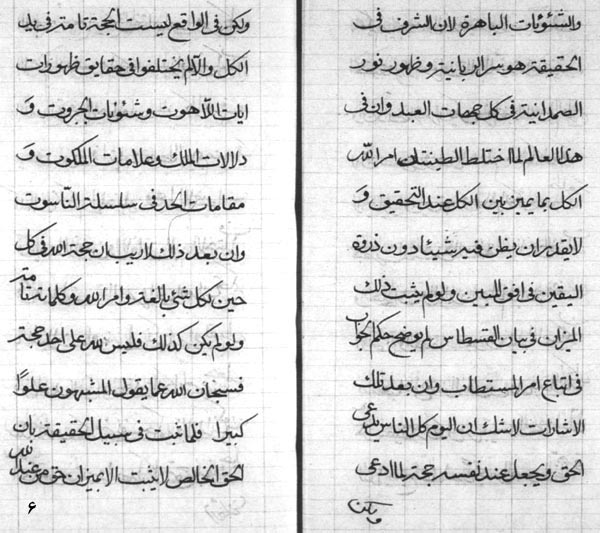 والشئونات الباهرة لان الشرف فى
الحقيقة هو سر الربانية و ظهور نور
الصمدانية فى كل جهات العبد وان فى
هذا العالم لما اختلط الطينتان امر الله
الكل بما يميز بين الكل عند التحقيق و
لا يقدر ان يظن فيه شيئا دون ذروة
اليقين فى افق المبين ولو لم يثبت ذلك
الميزان فى بيان القسطاس لم يوضح حكم الجواب
فى اتباع امر المستطاب وان بعد تلك
الاشارات لا شك ان اليوم كل الناس يدعى
الحق ويجعل عند نفسه حجة لما ادعى
ولكن
ولكن فى الواقع ليست الحجة تامة فى يد
الكل والا لم يختلفوا فى حقايق ظهورات
ايات اللاهوت و شئونات الجبروت و
دلالات الملك و علامات الملكوت و
مقامات الحد فى سلسلة الناسوت
وان بعد ذلك لا ريب ان حجة الله فى كل
حين لكل شئ بالغة وامر الله وكلماته تامة
ولو لم يكن كذلك فليس لله على احد حجة
فسبحان الله عما يقول المشبهون علوا
كبيرا فلما ثبت فى سبيل الحقيقة بان
الحق الخالص لا يثبت الا بميزان حق من عند الله
۶